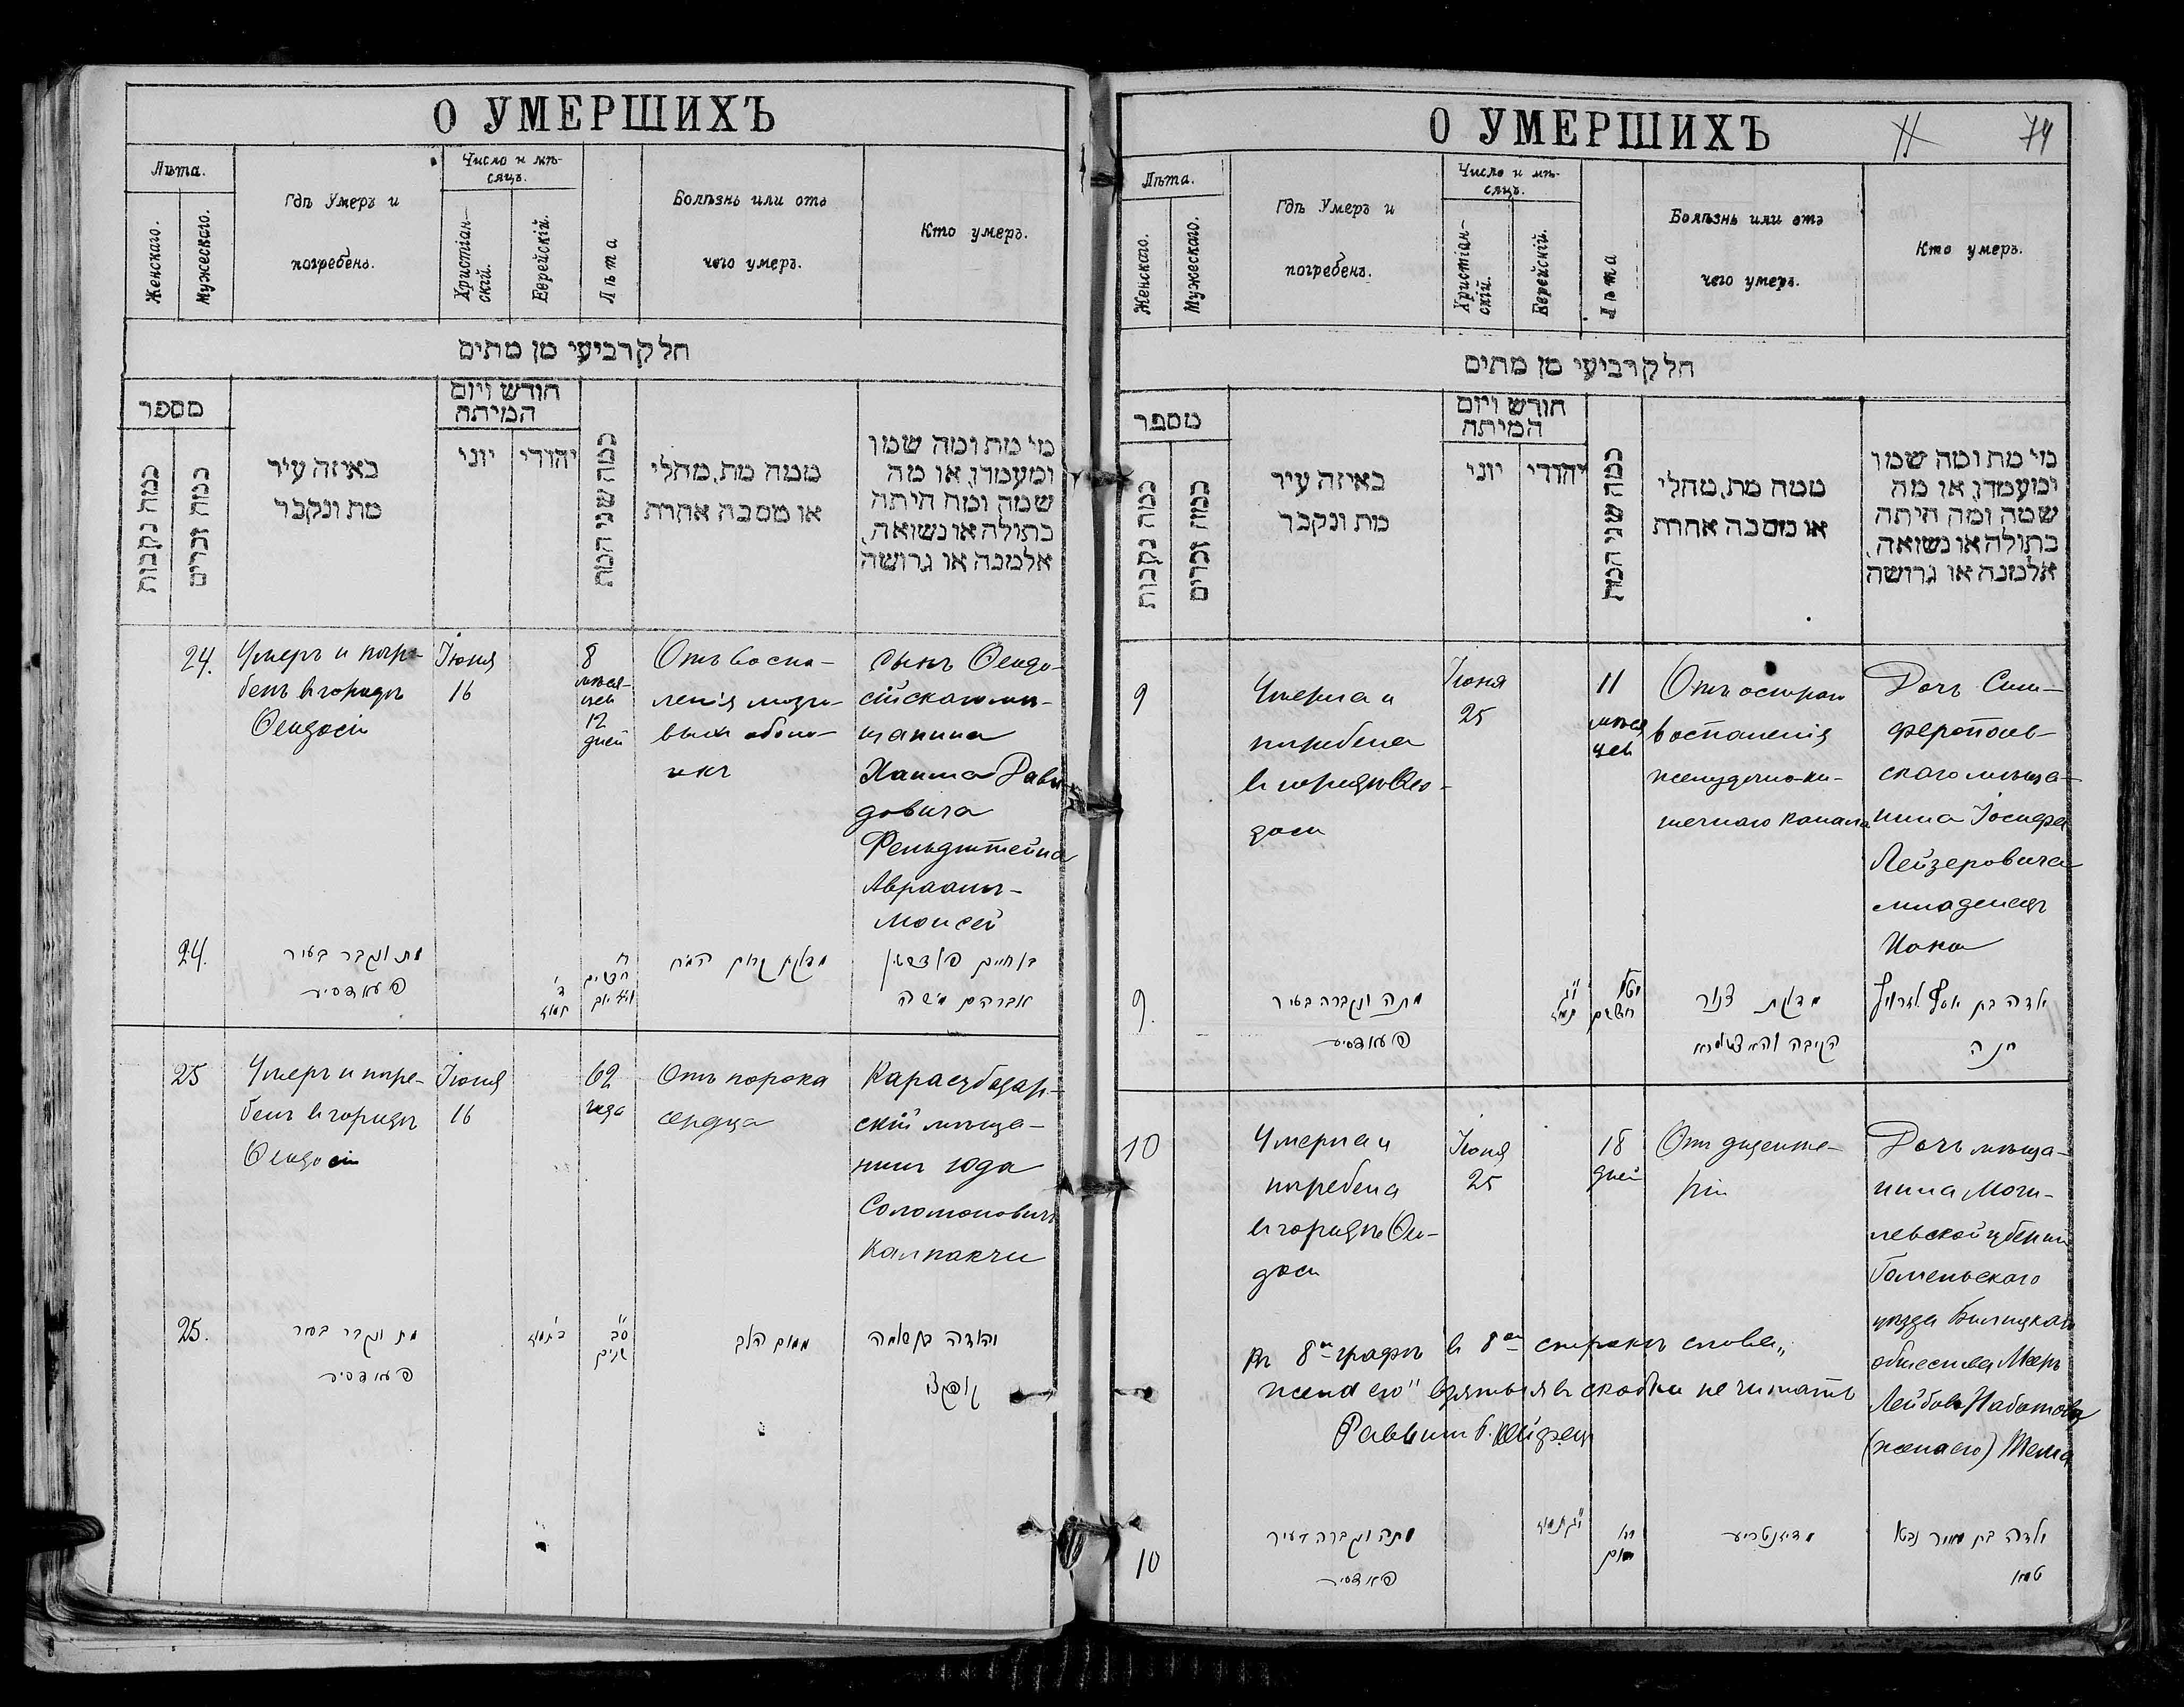 О УМЕРШИХЪ
Лѣта.
Женскаго.
Мужескаго.
Гдѣ Умеръ и
погребенъ.
Число и мѣ-
сяцъ.
Христіан-
скій.
Еврейскій.
Лѣта
Болѣзнь или отъ
чего умеръ.
Кто умеръ.
חלק רביעי מן מתים
מספר
כמה נקבות
כמה זכרים
באיזה עיר
מת ונקבר
חודש ויום
המיתה
יוני
יהודי
כמה שני המת
ממה מת, מחלי
או מסבה אחרת
מי מת ומה שמו
ומעמדו, או מה
שמה ומה היתה
בתולה או נשואה,
אלמנה או גרושה
24.
Умеръ и погре-
бенъ въ городѣ
Ѳеодосіи
Іюня
16
8
мѣся-
цев
12
дней
Отъ воспа-
ленія мозго-
выхъ оболо-
чекъ
Сынъ Ѳеодо-
сійскаго мѣ-
щанина
Хаима Давы-
довича
Фельдштейна
Авраамъ-
Моисей
24.
מת ונקבר בעיר
פעאדסיע
ח
חדשים
אברהם משה
25
Умеръ и погре-
бенъ въ городѣ
Ѳеодосіи
Іюня
16
62
года
Отъ порока
сердца
Карасубазар-
скій мѣща-
нинъ Юда
Соломоновичъ
Калпакчи
25.
מת ונקבר בעיר
פעאדסיע
סב
שנים
ממום הלב
יהודה בן שלמה
О УМЕРШИХЪ
11
74
Лѣта.
Женскаго.
Мужескаго.
Гдѣ Умеръ и
погребенъ.
Число и мѣ-
сяцъ.
Христіан-
скій.
Еврейскій.
Лѣта
Болѣзнь или отъ
чего умеръ.
Кто умеръ.
חלק רביעי מן מתים
מספר
כמה נקבות
כמה זכרים
באיזה עיר
מת ונקבר
חודש ויום
המיתה
יוני
יהודי
כמה שני המת
ממה מת, מחלי
או מסבה אחרת
מי מת ומה שמו
ומעמדו, או מה
שמה ומה היתה
בתולה או נשואה,
אלמנה או גרושה
9
Умерла и
погребена
въ городѣ Ѳео-
досіи
Іюня
25
11
мѣся
цев
Отъ остраго
воспаленія
желудочно-ки-
шечнаго канала
Дочь Сим-
ферополь-
скаго мѣща-
нина Іосифа
Лейзеровича
младенецъ
Хана
9.
מתה ונקברה בעיר
פעאדסיע
חדשים
ילדה בת יוסף
חנה
10
Умерла и
погребена
въ городѣ Ѳео-
досіи
Іюня
25
18
дней
Отъ дизенте-
ріи
Дочь мѣща-
нина Моги-
левской губерніи
Гомельскаго
уѣзда Бѣлицкаго
общества Меръ
Лейбовъ Набатова
(жена его) Тема
Въ 8й графѣ въ 8й строкѣ слова „
жена его" взятыя въ скобки не читать
Раввинъ Б.
10
מתה ונקברה בעיר
פעאדסיע
חי
יום
מדיזנטריע
ילדה בת מאיר
טעמא